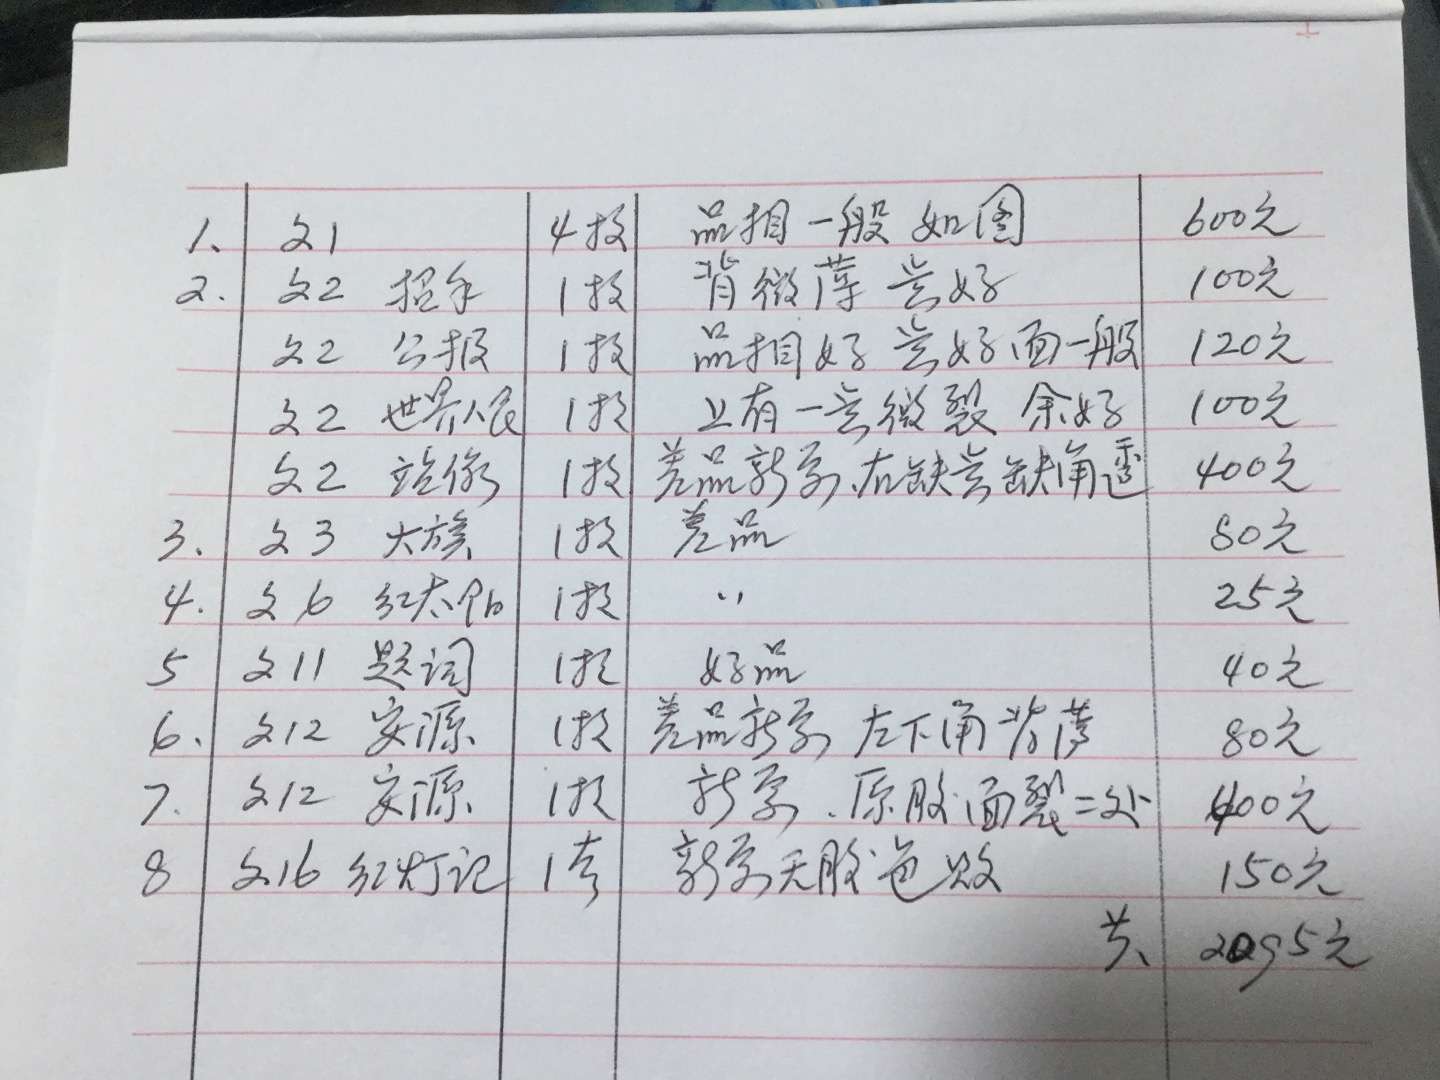 1、 文1 4枚 品相一般 如图 600元
2. 文2 招手 1枚 背微薄 齿好 100元
文2 公报 1枚 品相好 齿好面一般 120元
文2 世界人民 1枚 上有一齿微裂 余好 100元
文2 站像 1枚 差品新票.右缺齿缺角透 400元
3. 文3 大族 1枚 差品 80元
4. 文6 红太阳 1枚 〃 25元
5 文11 题词 1枚 好品 40元
6. 文12 安源 1枚 差品新票 左下角背薄 80元
7. 文12 安源 1枚 新票.原胶面裂二处 400元
8 文16 红灯记 1套 新票无胶色败 150元
共、 2095元